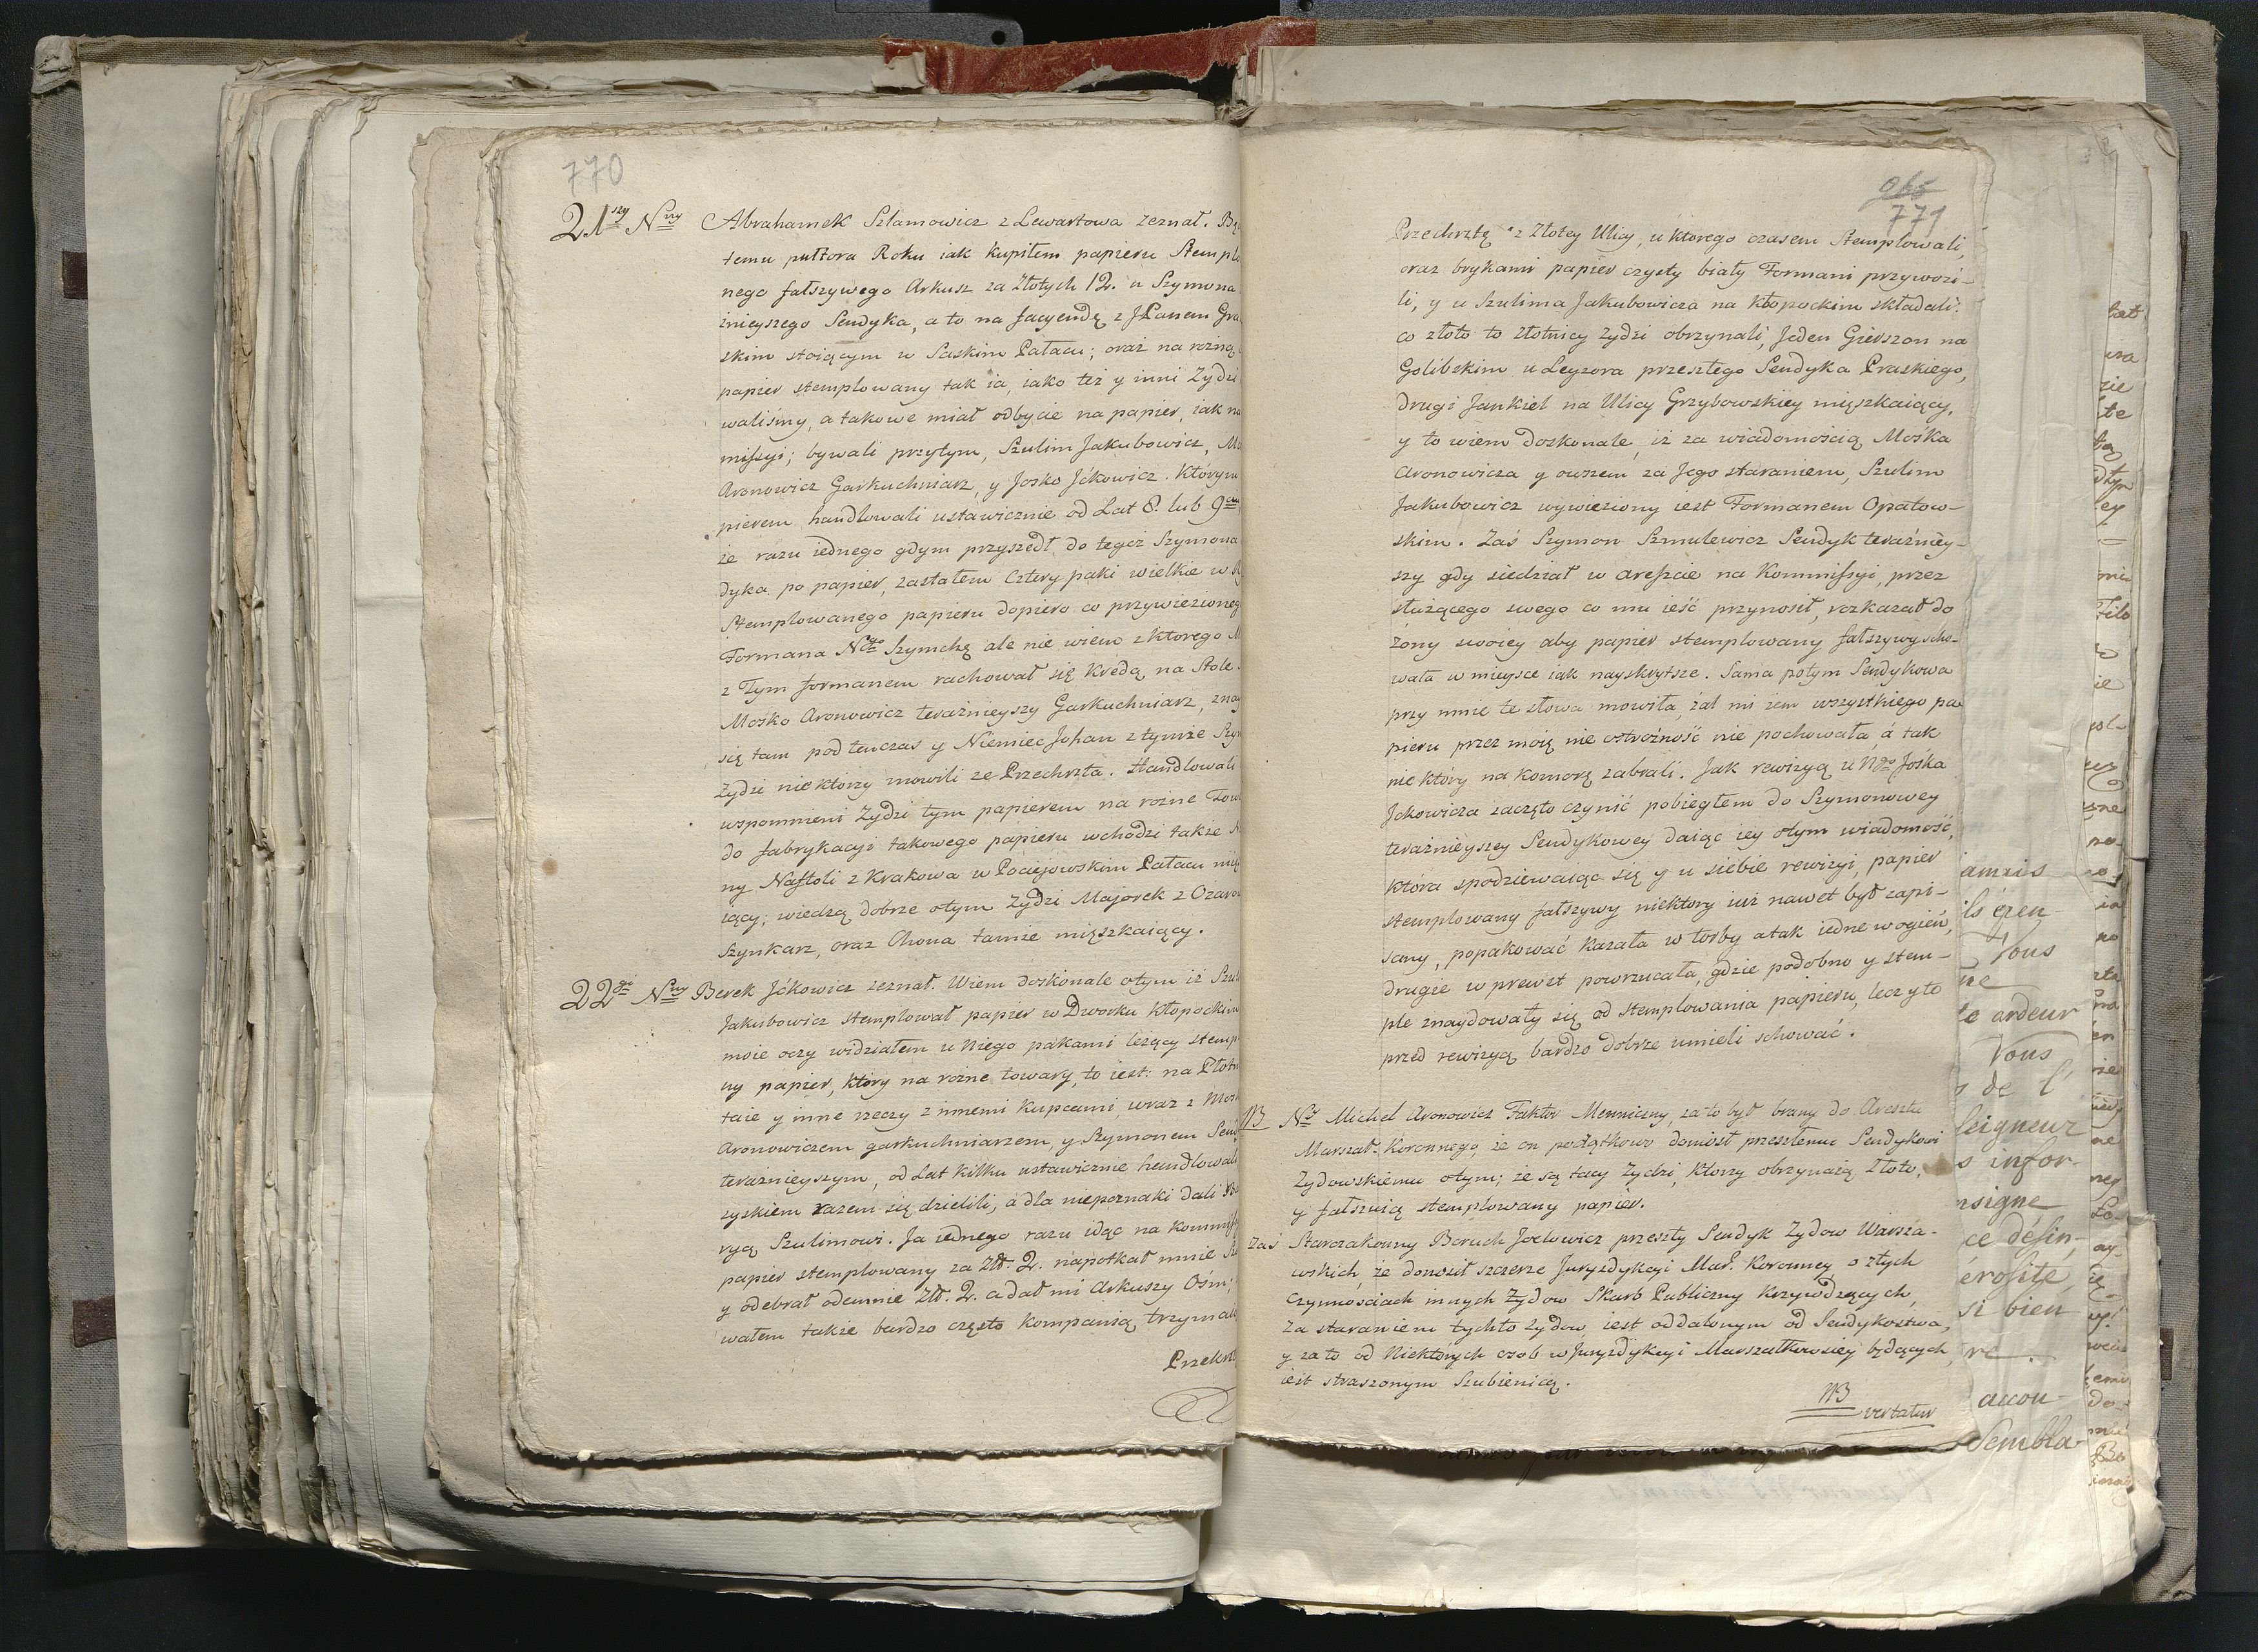 770
21szy Nny Abrahamek Szlamowicz z Lewartowa zeznał. Bę
temu pułtora Roku iak kupiłem papieru Stempl
nego fałszywego Arkusz za Złotych 12. u Szymona
znieyszego Sendyka, a to na facyendę z JPanem Gra
skim stoiącym w Saskim Pałacu; oraz na rozną
papier stemplowany tak ia, iako też y inni Zydzi
waliśmy, a takowe miał odbycie na papier, iak na
missyi; bywali przytym, Szulim Jakubowicz, Mo
Aronowicz Garkuchniarz, y Josko Jckowicz. Którym
pierem handlowali ustawicznie od Lat 8. lub 9ciu
że razu iednego gdym przyszedł do tegoż Szymona
dyka, po papier, zastałem Cztery paki wielkie w
Stemplowanego papieru dopiero co przywiezioneg
Formana Ngo Szymchę ale nie wiem z ktorego M
z Tym formanem rachował się Kredą na Stole.
Mosko Aronowicz teraźnieyszy Garkuchniarz, znay
się tam pod tenczas y Niemiec Johan z tymże Szy
Zydzi niektórzy mowili ze Przechrzta. Handlowali
wspomnieni Zydzi tym papierem na rożne Tow
do fabrykacyi takowego papieru wchodzi także N
ny Naftoli z Krakowa w Pociejowskim Pałacu mię
iący; wiedzą dobrze otym Zydzi Majorek z Ozaro
Szynkarz, oraz Chona tamże mięszkaiący.
22gi Nny Berek Jckowicz zeznał. Wiem doskonale otym iż Szul
Jakubowicz stemplował papier w Dworku Kłopockim
moie oczy widziałem u Niego pakami leżący stemp
ny papier, który na rożne towary, to iest: na Płotn
taie y inne rzeczy z innemi Kupcami, wraz z Mosk
Aronowiczem garkuchniarzem, y Szymonem Send
teraźnieyszym, od Lat kilku ustawicznie handlowali
zyskiem razem się dzielili, a dla niepoznaki dali
ryą Szulimowi. Ja iednego razu idąc na Kommiss
papier stemplowany za Złt. 2. napotkał mnie Sz
y odebrał odemnie Złt. 2. a dał mi Arkuszy Ośm;
wałem także bardzo często kompanią trzymaią
Przechrz
965
771
Przechrztę z Złotey Ulicy, u ktorego czasem Stemplowali,
oraz brykami papier czysty biały Formani przywozi-
li, y u Szulima Jakubowicza na Kłopockim składali:
co złoto to złotnicy Zydzi obrzynali, Jeden Gierszon na
Golibskim u Leyzora przeszłego Sendyka Praskiego,
drugi Jankiel na Ulicy Grzybowskiey mięszkaiący,
y to wiem doskonale, iż za wiadomością Mośka
Aronowicza y owszem za Jego staraniem, Szulim
Jakubowicz wywieziony iest Formanem Opatow-
skim. Zaś Szymon Szmulewicz Sendyk teraźniey-
szy gdy siedział w areszcie na Kommissyi, przez
służącego swego co mu ieść przynosił, rozkazał do
żony swoiey aby papier stemplowany fałszywy scho-
wała w mieysce iak nayskrytsze. Sama potym Sendykowa
przy mnie te słowa mowiła, żal mi żem wszystkiego pa-
pieru przez moią nie ostrożność nie pochowała, a tak
nie który na komorę zabrali. Jak rewizyą u Ngo Jośka
Jckowicza zaczęto czynić pobiegłem do Szymonowey
teraźnieyszey Sendykowey daiąc iey otym wiadomość,
która spodziewaiąc się y u siebie rewizyi, papier
stemplowany fałszywy niektory iuż nawet był zapi-
sany, popakować kazała w torby a tak iedne w ogień,
drugie w prewet powrzucała, gdzie podobno y stem-
ple znaydowały się od stemplowania papieru, lecz y to
przed rewizyą bardzo dobrze umieli schować.
NB Ny Michel Aronowicz Faktor Menniczny, za to był brany do Aresztu
Marszał: Koronnego, że on początkowo doniosł przeszłemu Sendykowi
Zydowskiemu otym; że są tacy Zydzi, ktorzy obrzynaią Złoto,
y fałszuią stemplowany papier.
Zaś Starozakonny Boruch Joelowicz przeszły Sendyk Zydow Warsza-
wskich, że donosił szczerze Juryzdykcyi Mar. Koronney o złych
Czynnościach innych Zydow Skarb Publiczny Krzywdzących,
za staraniem tychto Zydow iest oddalonym od Sendykostwa,
y za to od Niektórych osob w Juryzdykcyi Marszałkowskiey będących
iest straszonym Szubienicą.
NB
vertatur
amais
ils épen-
Vous
ne
te ardeur
Vous
de l'
Seigneur
infor-
nsigne
ce désin-
érosité,
si bien
re.
accou-
Sembla-